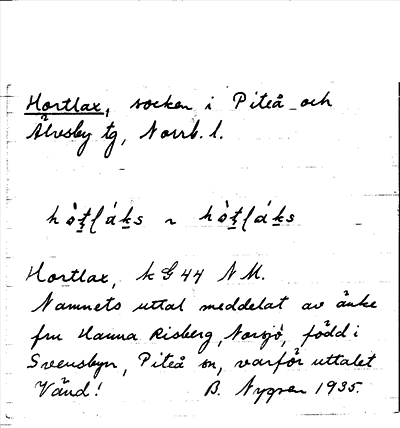 Hortlax, socken i Piteå och
Älvsby tg, Norrb. l.
Hortlax, k G 44 N M.
Namnets uttal meddelat av änke
fru Hanna Risberg, Norsjö, född i
Svensbyn, Piteå sn, varför uttalet
Vänd! B. Nygren 1935.